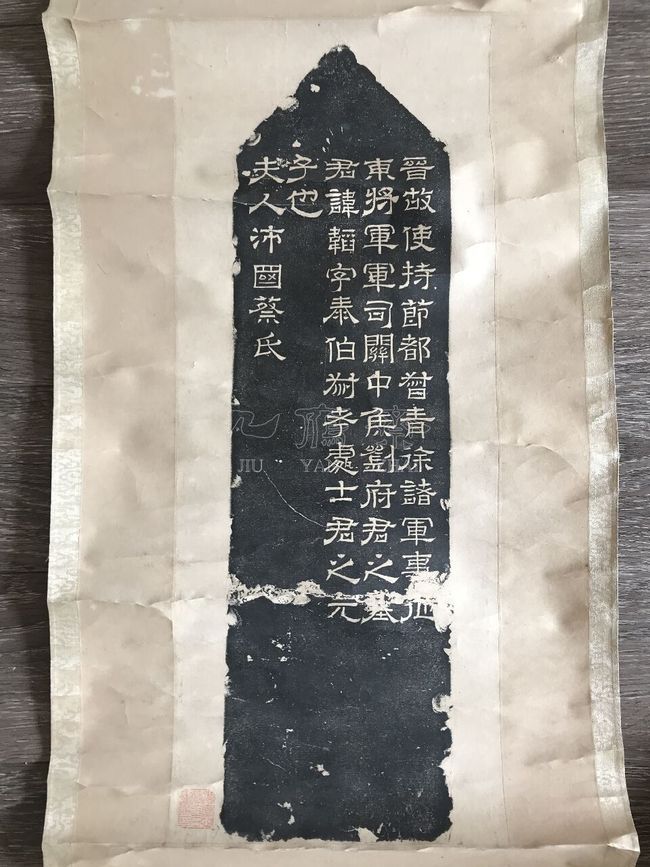 晉故使持節都督青徐諸軍事征
東將軍軍司關中侯劉府君之墓
君諱韜字泰伯考處士君之元
子也
夫人沛國蔡氏
JIU